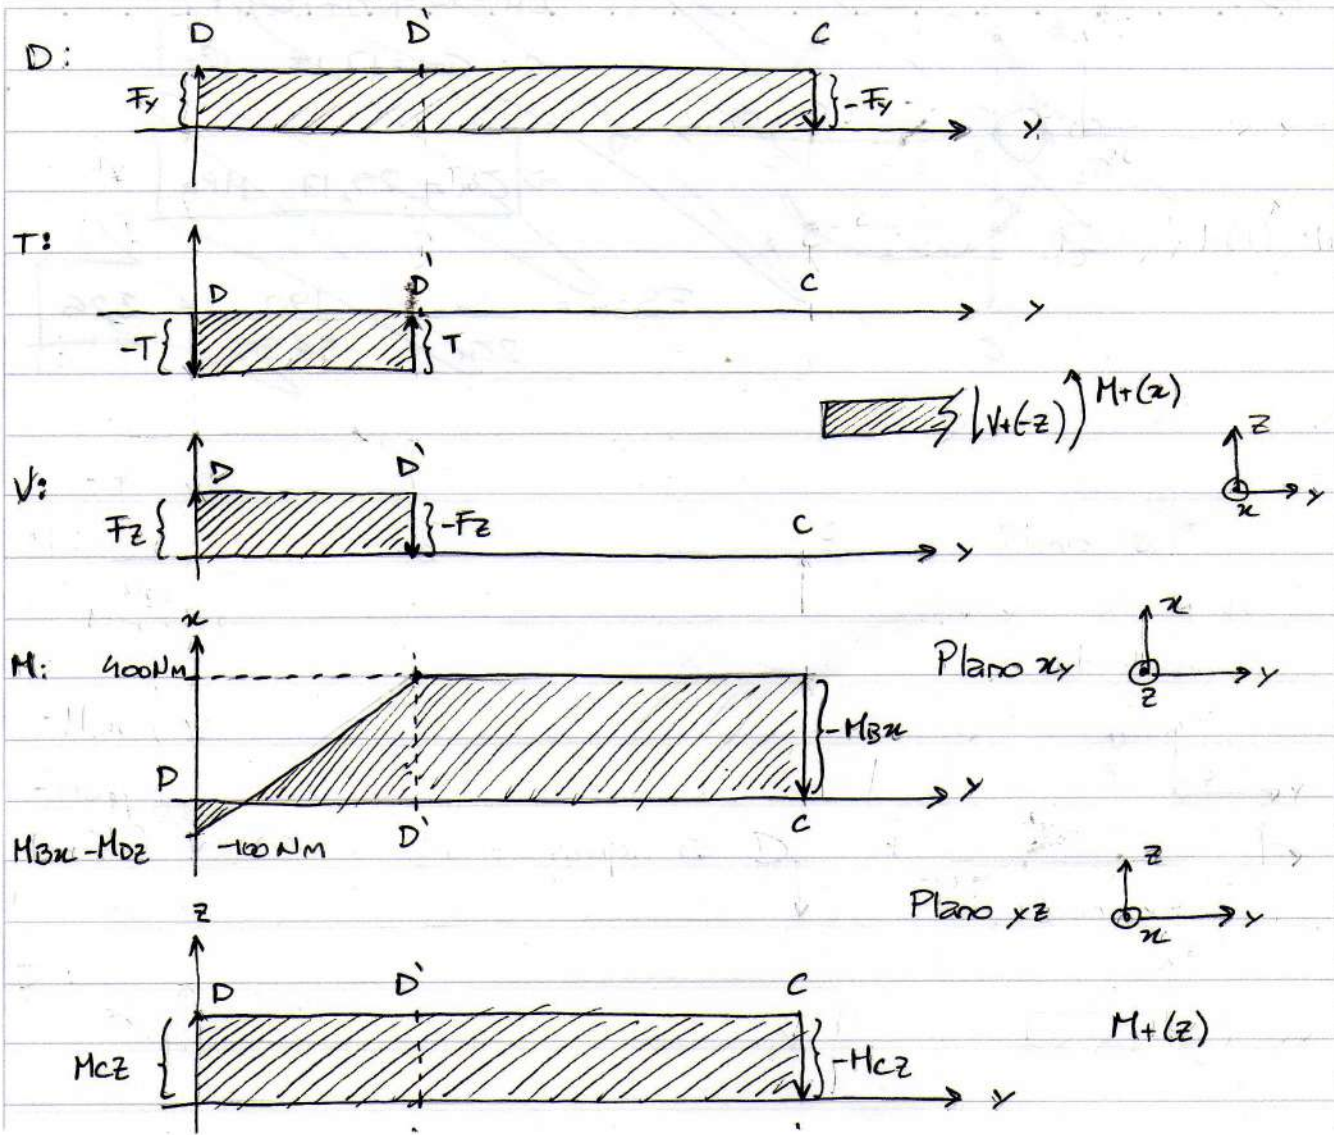 D D' C
D:
Fy -Fy
y
T:
D D' C
y
-T T
M+(x)
V+(-z)
z
V:
D D'
x y
Fz -Fz C
y
x
M: 400NM Plano xy x
z y
-MBx
D y
D' C
MBx-MDz -100NM
z
Plano yz
x y
z
D D' C
M+(z)
Mcz -Mcz
y